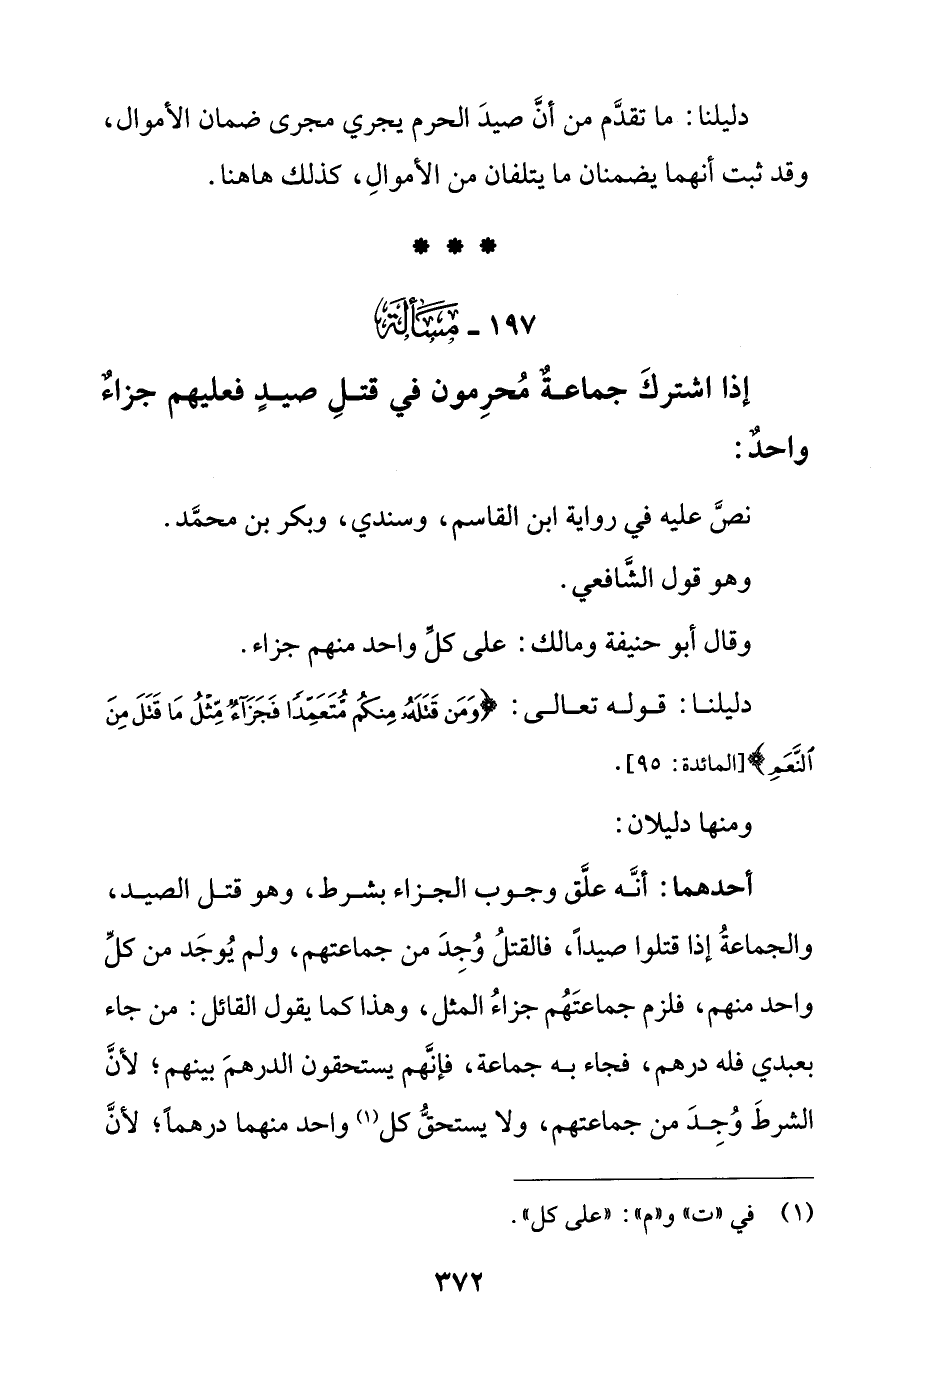 دليلنا: ما تقدَّم من أنَّ صيدَ الحرم يجري مجرى ضمان الأموال،
وقد ثبت أنهما يضمنان ما يتلفان من الأموالِ، كذلك هاهنا.
* * *
١٩٧ - مَسْأَلَة
إذا اشتركَ جماعةٌ مُحرِمون في قتلِ صيدٍ فعليهم جزاءٌ
واحدٌ:
نصَّ عليه في رواية ابن القاسم، وسندي، وبكر بن محمَّد.
وهو قول الشَّافعي.
وقال أبو حنيفة ومالك: على كلِّ واحد منهم جزاء.
دليلنا: قوله تعالى: ﴿وَمَن قَتَلَهُۥ مِنكُم مُّتَعَمِّدًا فَجَزَآءٌ مِّثْلُ مَا قَتَلَ مِنَ
ٱلنَّعَمِ﴾ [المائدة: ٩٥].
ومنها دليلان:
أحدهما: أنَّه علَّق وجوب الجزاء بشرط، وهو قتل الصيد،
والجماعةُ إذا قتلوا صيداً، فالقتلُ وُجِدَ من جماعتهم، ولم يُوجَد من كلِّ
واحد منهم، فلزم جماعتَهُم جزاءُ المثل، وهذا كما يقول القائل: من جاء
بعبدي فله درهم، فجاء به جماعة، فإنَّهم يستحقون الدرهمَ بينهم؛ لأنَّ
الشرطَ وُجِدَ من جماعتهم، ولا يستحقُّ كل(١) واحد منهما درهماً؛ لأنَّ
(١) في «ت» و«م»: «على كل».
٣٧٢